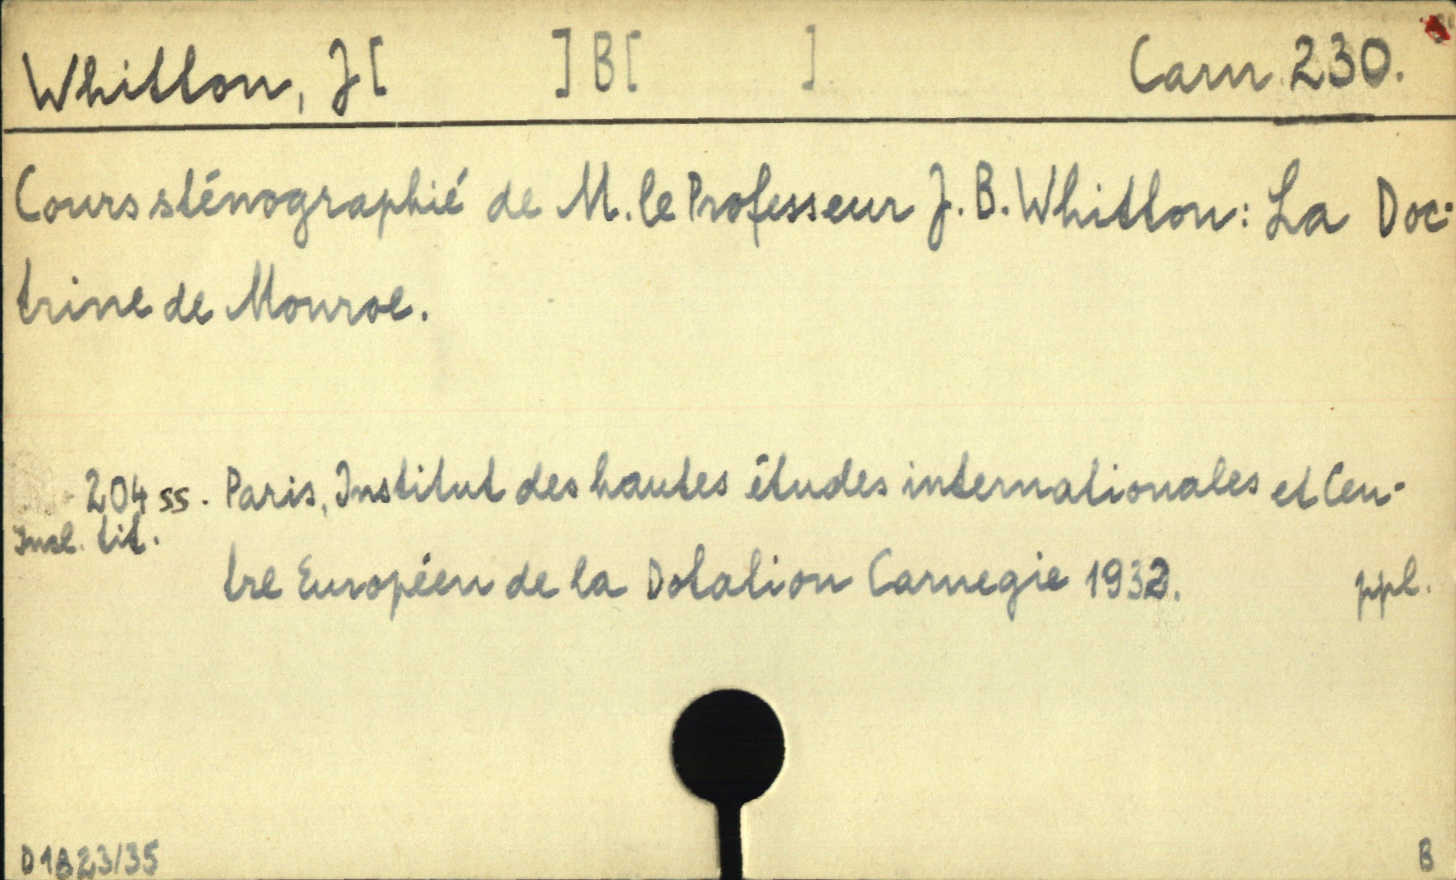 Whitton, J[ ] B[ ] Carn 230.
Cours sténographié de M. le Professeur J. B. Whitton: La Doc-
trine de Monroe.
204 ss. Paris, Institut des hautes études internationales et Cen-
Insl. tit.
tre Européen de la Dotation Carnegie 1932. ppl.
D 1823/35 B